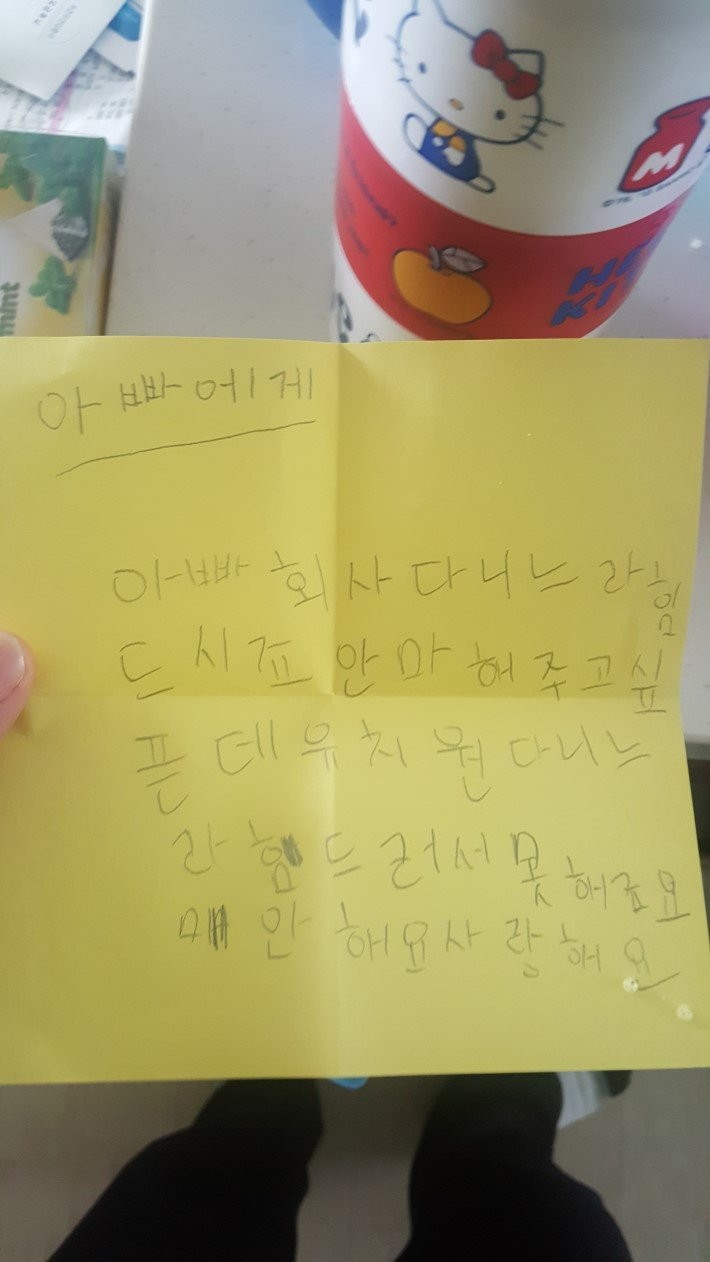 mint
M
HE
KI
아빠에게
아빠 회사 다니느라 힘
드시죠 안마 해주고싶
픈데 유치원 다니느
라 힘드러서 못해죠요
매안해요 사랑해요